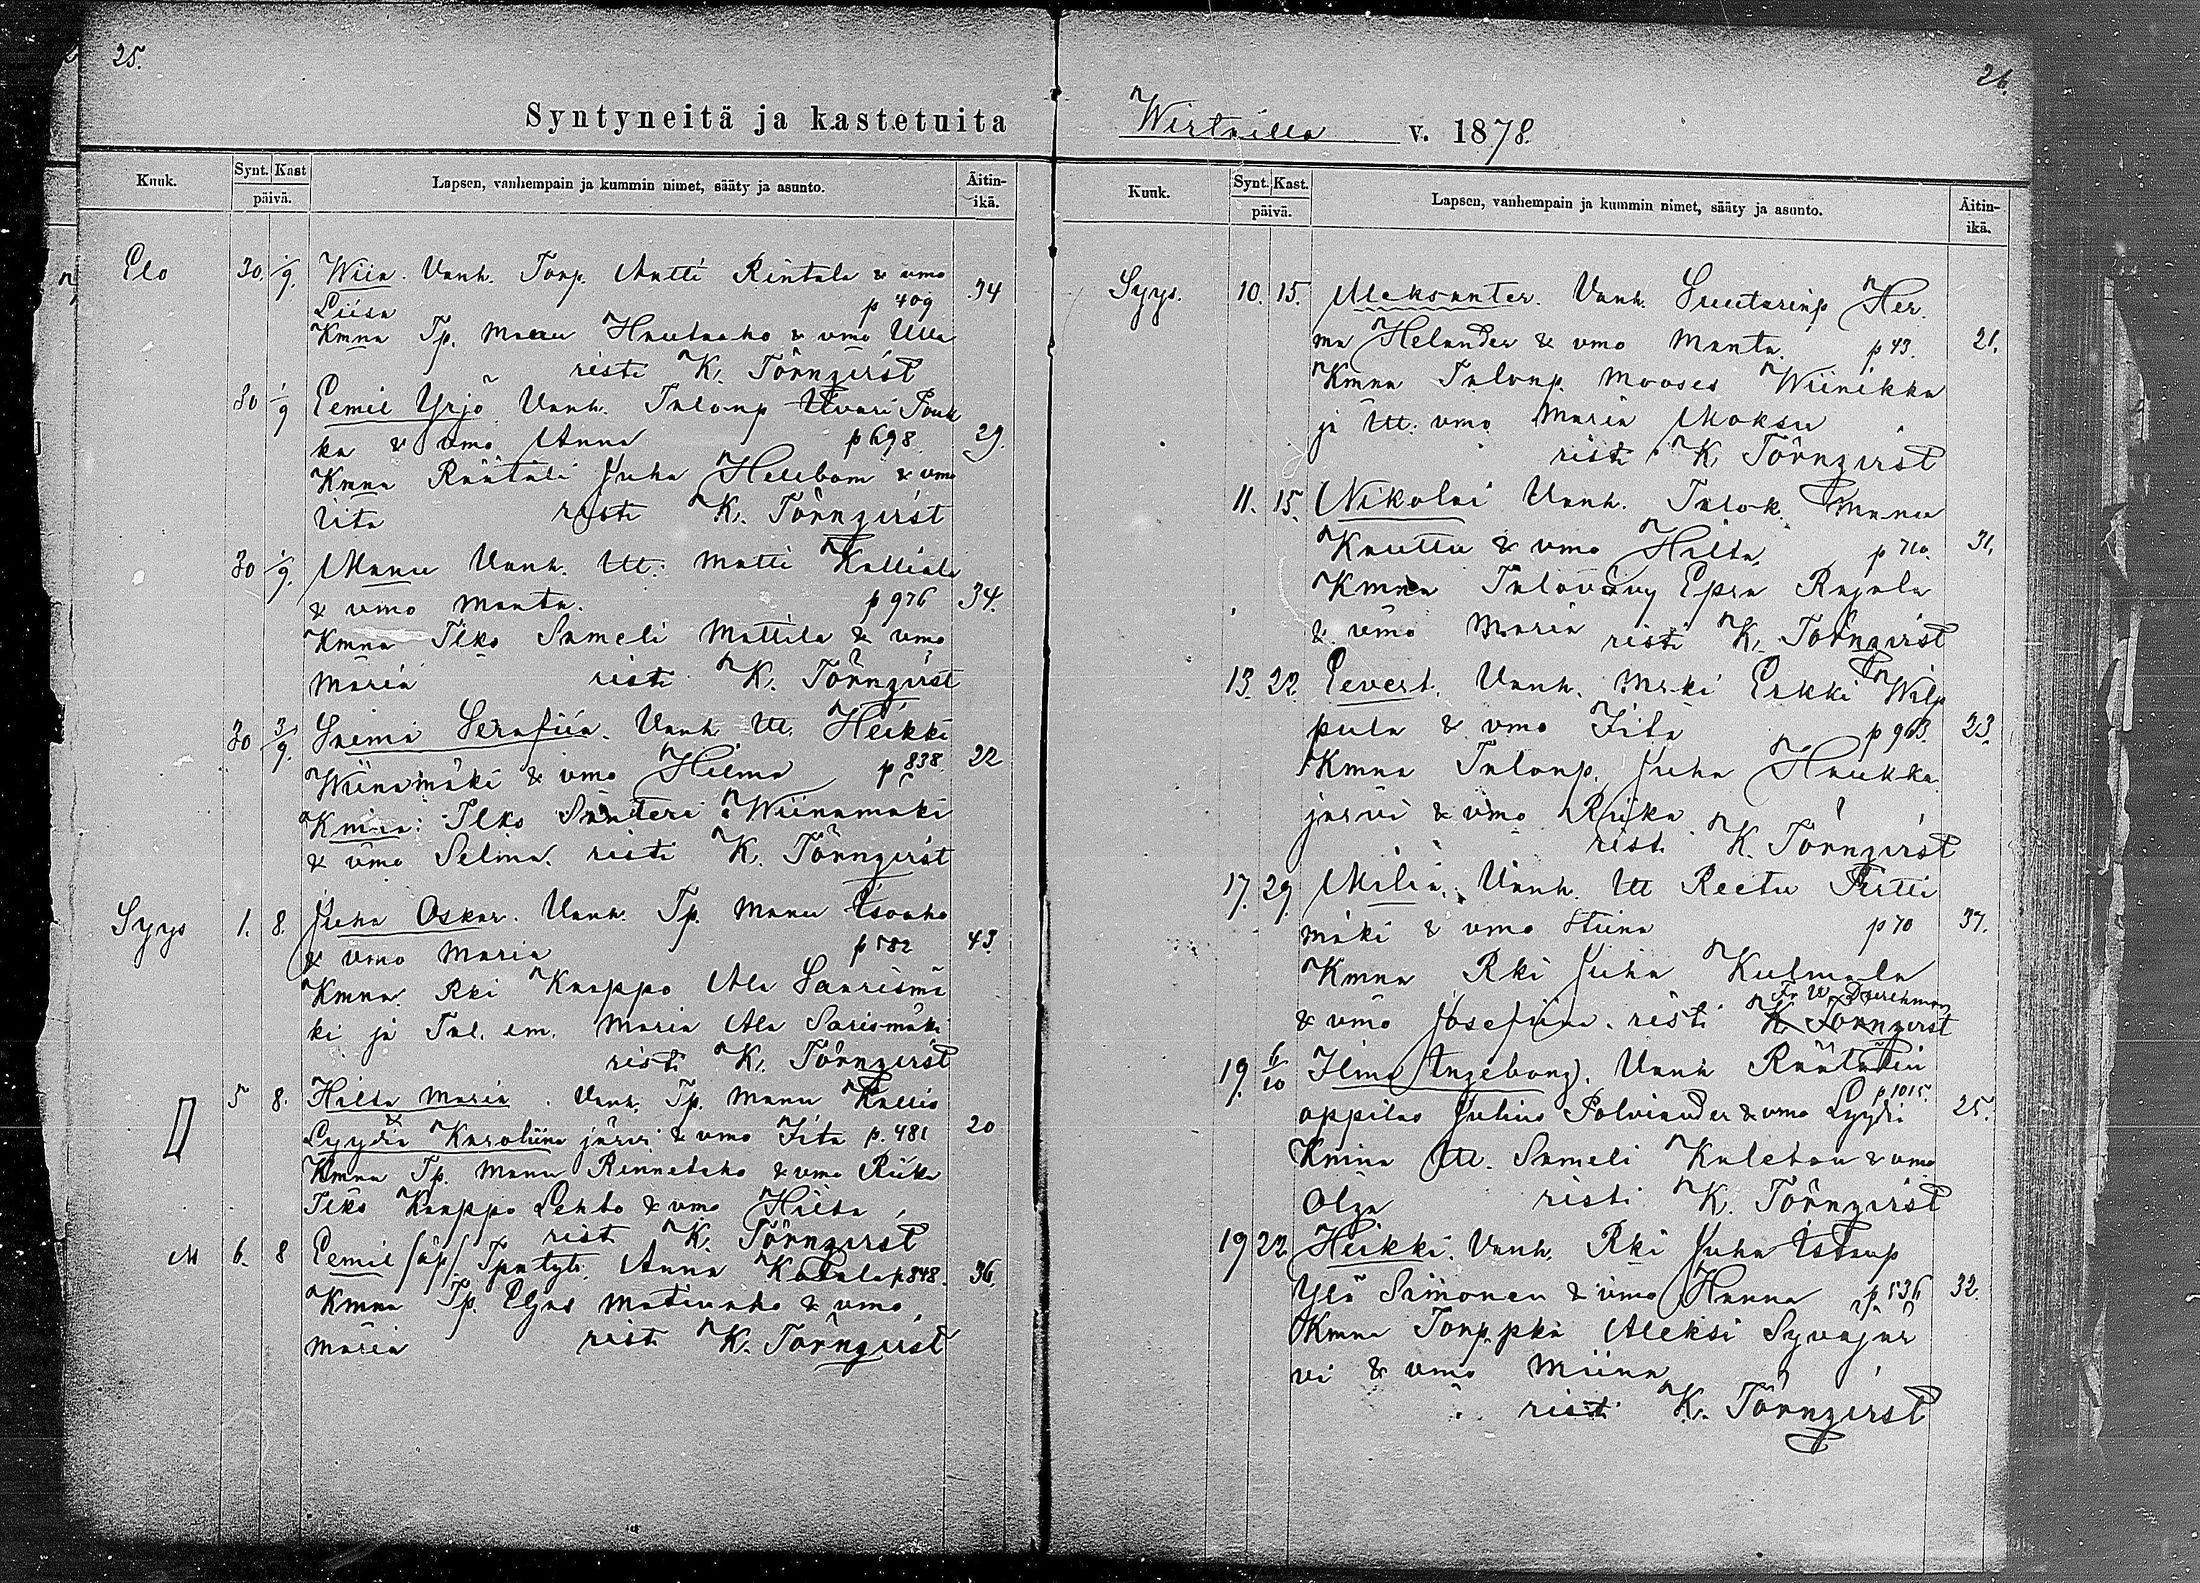 25.
Syntyneitä ja kastetuita
Kuuk. Synt. Kast päivä. Lapsen, vanhempain ja kummin nimet, sääty ja asunto. Äitin-ikä.
Elo 30. 1/9. Wiia. Vanh. Torp. Antti Rintala & vmo 34
Liisa p 409
Kmna Tp. Manu Hautaaho & vmo Ulla
risti K. Törnqvist
30 1/9 Eemil Yrjö Vanh. Talonp
ka & vmo Anna p 698. 29.
Kmna Räätäli Juha Hellbom & vmo
Iita risti K. Törnqvist
30 1/9. Manu Vanh. Itl. Matti Kalliala
& vmo Manta. p 976 34.
Kmna Ilko Sameli Mattila & vmo
Maria risti K. Törnqvist
30 3/9. Saima Serafiia. Vanh Itl. Heikki
Wiinamäki & vmo Hilma p 838. 22
Kmna: Ilko Santeri Wiinamäki
& vmo Selma. risti K. Törnqvist
Syys 1. 8. Juha Oskar. Vanh. Tp. Manu Isoaho
& vmo Maria p 582 43
Kmna. Rki Kaappo Ala Saarismä
ki ja Tal. em. Maria Ala Sarismäki
risti K. Törnqvist
5 8. Hilda Maria. Vanh. Tp. Manu Kallio
& Lyydia Karoliina järvi & vmo Iita p. 481 20
Kmna Tp. Manu Rinnetaho & vmo Riika
Ilko Kaappo Lehto & vmo Hilda
risti K. Törnqvist
M 6. 8 Eemil /äp/ Tp:n tytt. Anna p 848. 36.
Kmna Tp. Eljas & vmo
Maria risti K. Törnqvist
26.
Wirtailla v. 1878.
Kuuk. Synt. Kast. päivä. Lapsen, vanhempain ja kummin nimet, sääty ja asunto. Äitin-ikä.
Syys. 10. 15. Aleksanter. Vanh. Suutarinp Her.
ma Helander & vmo Manta. p 43. 21.
Kmna Talonp. Mooses Wiinikka
ja Itl. vmo Maria Moksu
risti K. Törnqvist
11. 15. Nikolai Vanh. Talok. Manu
Kauttu & vmo Hilda, p 710. 31.
Kmna Talovävy Epra Rajala
& vmo Maria risti K. Törnqvist
13. 22. Eevert. Vanh. Mäki Erkki Wilp
pula & vmo Iita p 963. 23.
Kmna Talonp. Juha Haukka
järvi & vmo Riika
risti K. Törnqvist
17. 29. Milia. Vanh. Itl Reetu Pirtti
mäki & vmo Stiina p 70 37.
Kmna Rki Juha Kulmala
& vmo Josefiina. risti K. Törnqvist
19. 6/10 Ilma Ingeborg). Vanh Räätälin
oppilas Julius Polviander & vmo Lyydi p. 1015. 25.
Kmna Itl. Sameli Kuleton & vmo
Olga risti K. Törnqvist
19 22. Heikki. Vanh. Rki Juha
Ylä Siimonen & vmo Hanna p. 536 32.
Kmna Torp.pka Aleksi Syväjär
vi & vmo Miina
risti K. Törnqvist